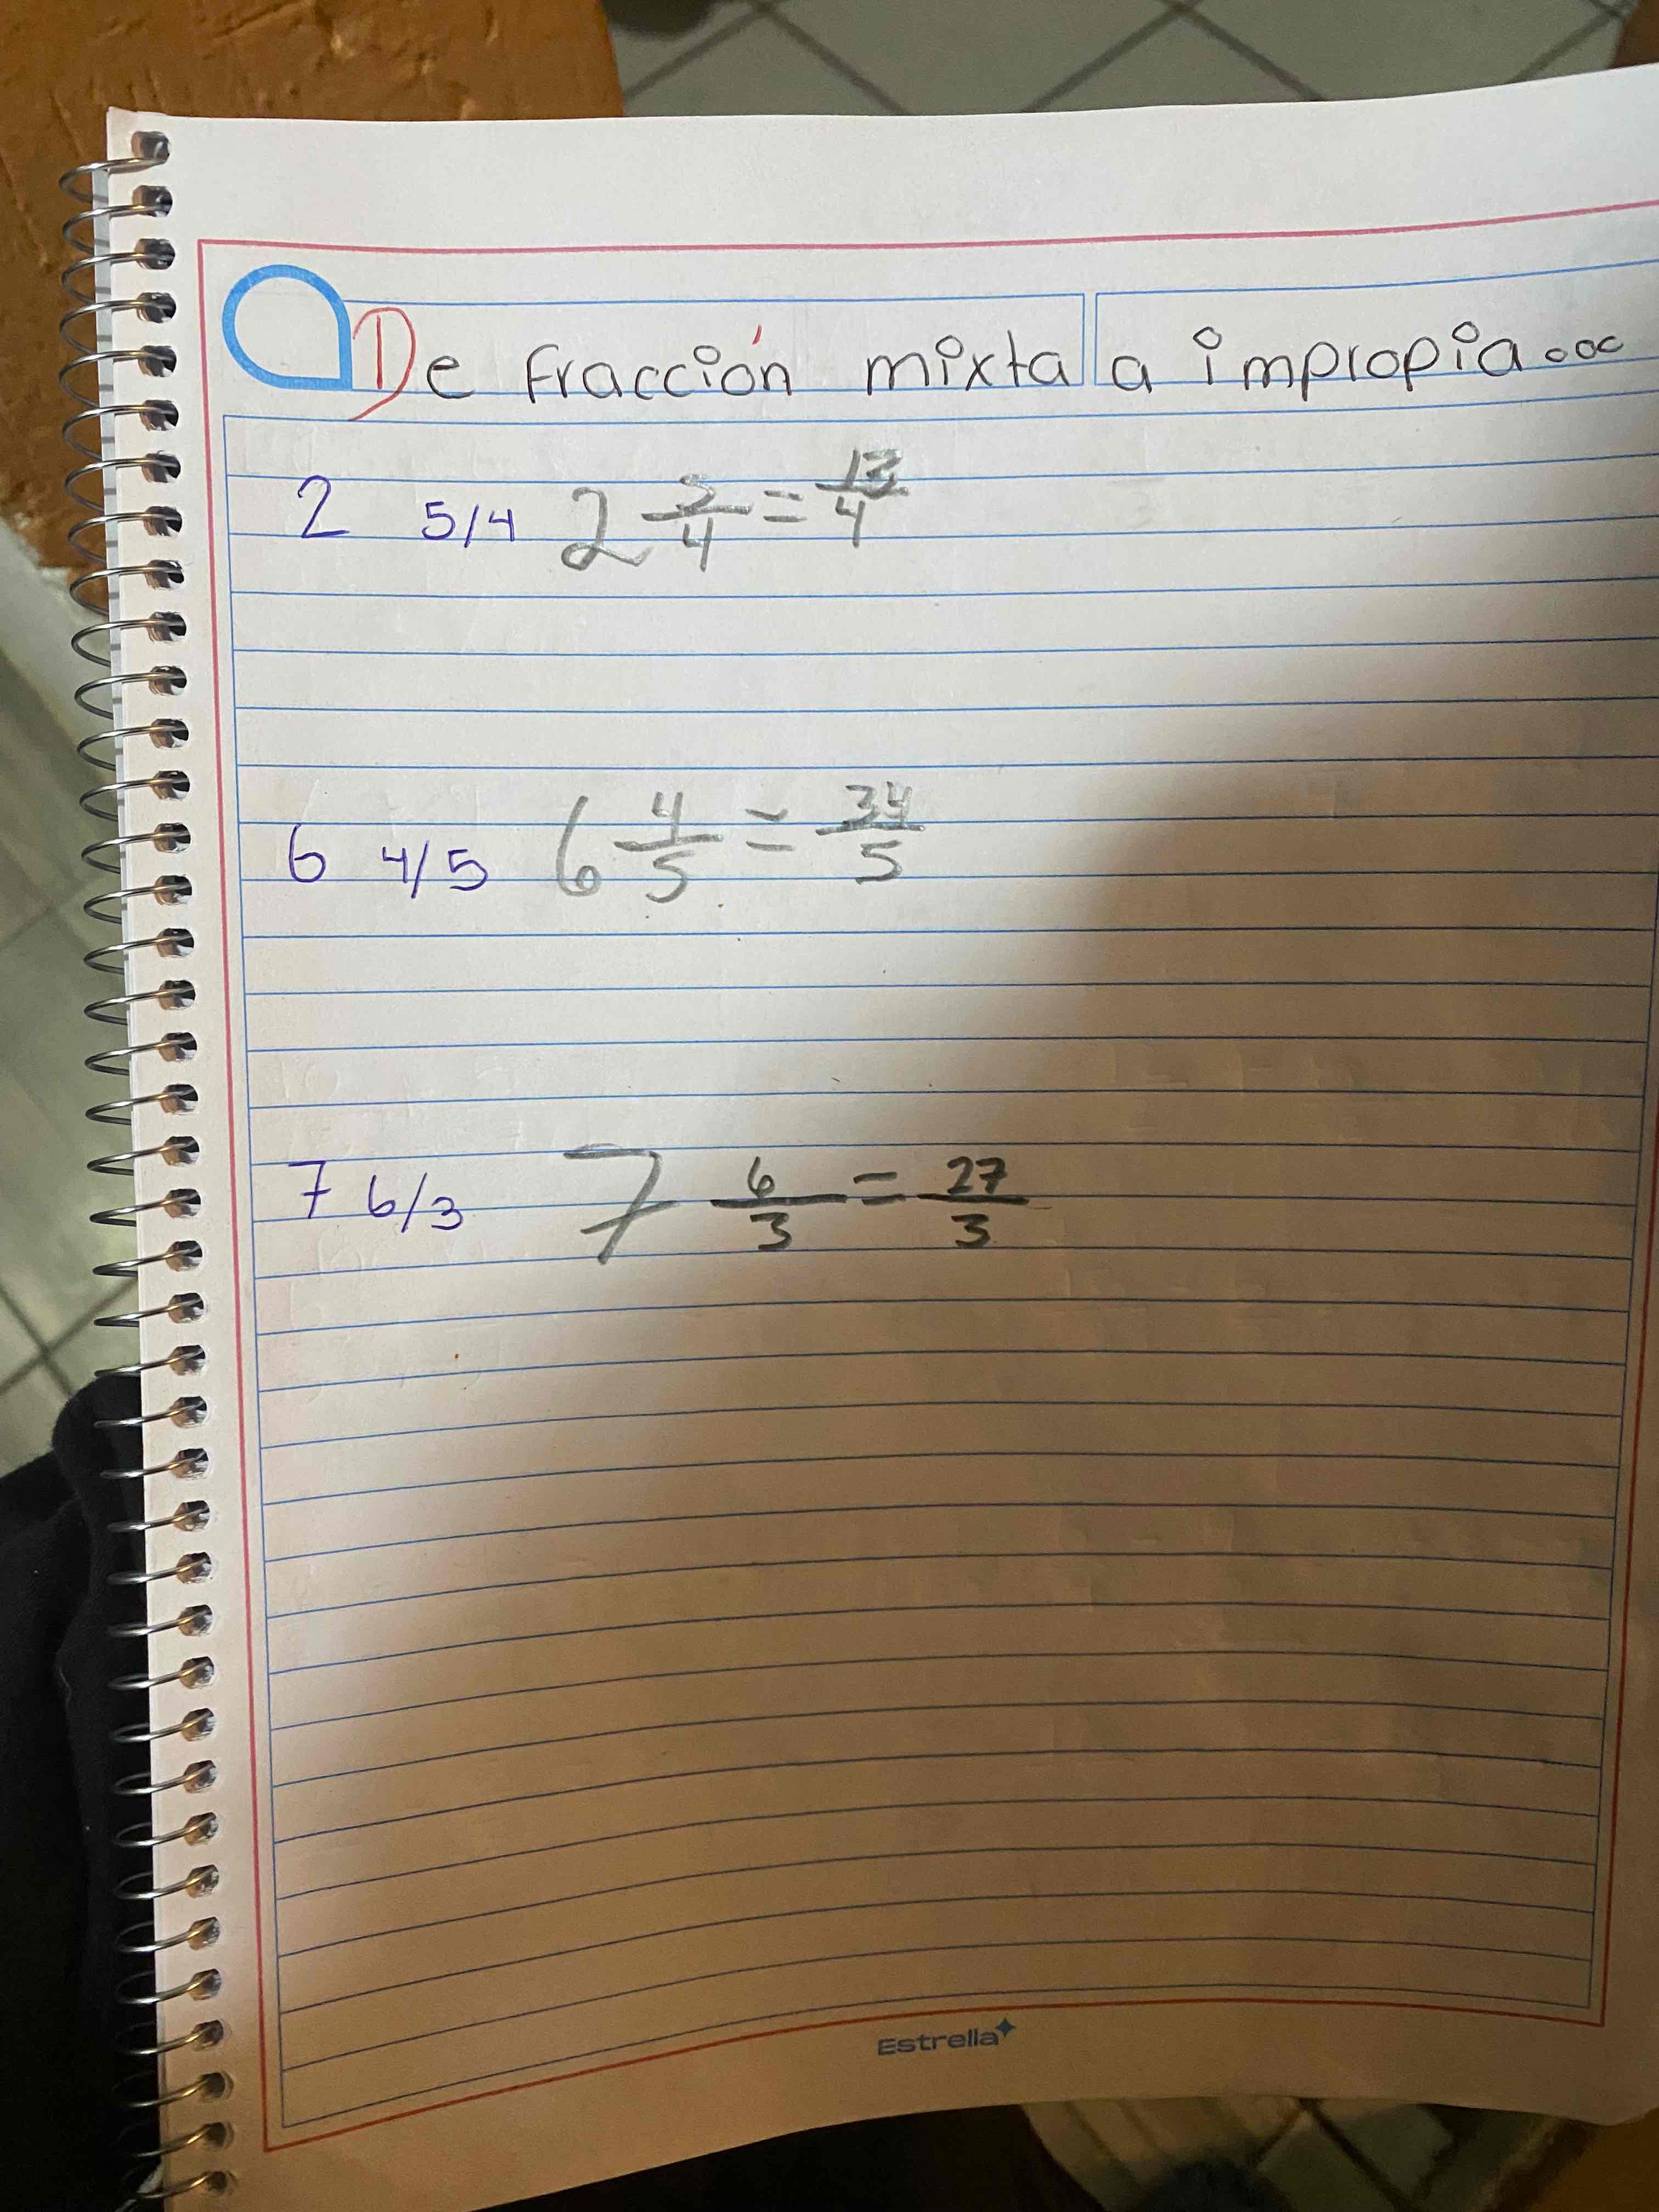 De fracción mixta a impropia...
2 5/4 2 5/4 = 13/4
6 4/5 6 4/5 = 34/5
7 6/3 7 6/3 = 27/3
Estrella